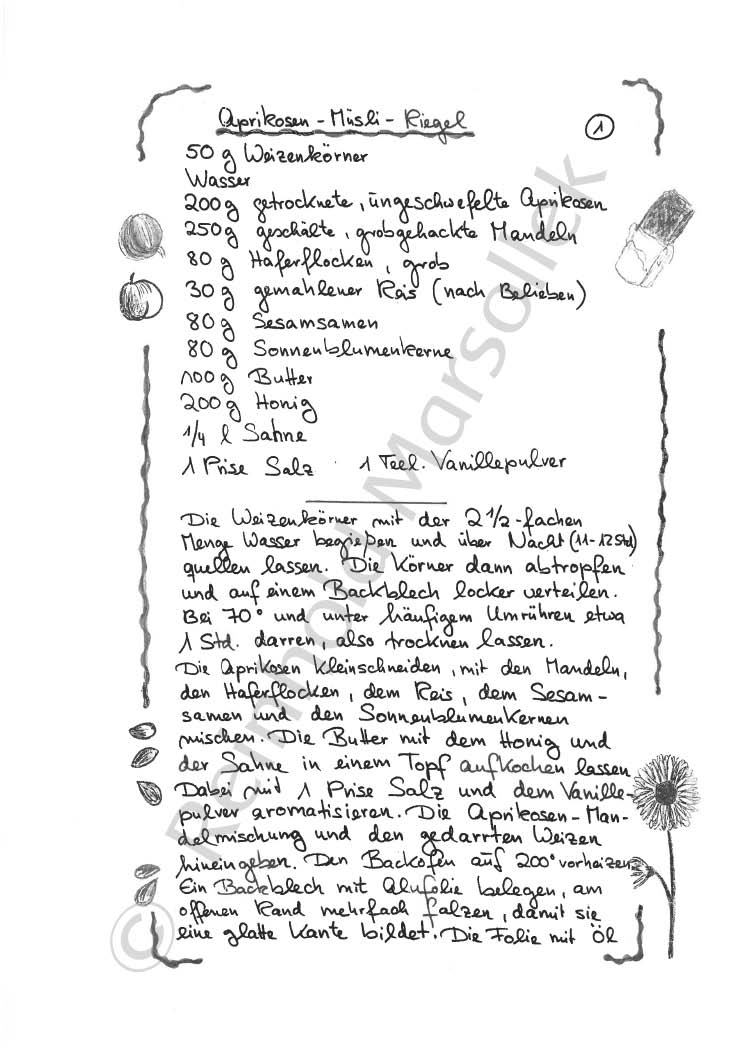 Aprikosen - Müsli - Riegel
1
50 g Weizenkörner
Wasser
200 g getrocknete, ungeschwefelte Aprikosen
250 g geschälte, grobgehackte Mandeln
80 g Haferflocken, grob
30 g gemahlener Reis (nach Belieben)
80 g Sesamsamen
80 g Sonnenblumenkerne
100 g Butter
200 g Honig
1/4 l Sahne
1 Prise Salz 1 Teel. Vanillepulver
Die Weizenkörner mit der 2 1/2-fachen
Menge Wasser begießen und über Nacht (11-12 Std)
quellen lassen. Die Körner dann abtropfen
und auf einem Backblech locker verteilen.
Bei 70° und unter häufigem Umrühren etwa
1 Std. darren, also trocknen lassen.
Die Aprikosen kleinschneiden, mit den Mandeln,
den Haferflocken, dem Reis, dem Sesam-
samen und den Sonnenblumenkernen
mischen. Die Butter mit dem Honig und
der Sahne in einem Topf aufkochen lassen
Dabei mit 1 Prise Salz und dem Vanille-
pulver aromatisieren. Die Aprikosen-Man-
delmischung und den gedarrten Weizen
hineingeben. Den Backofen auf 200° vorheizen
Ein Backblech mit Alufolie belegen, am
offenen Rand mehrfach falzen, damit sie
eine glatte Kante bildet. Die Folie mit Öl
© Reinhold Marsollek